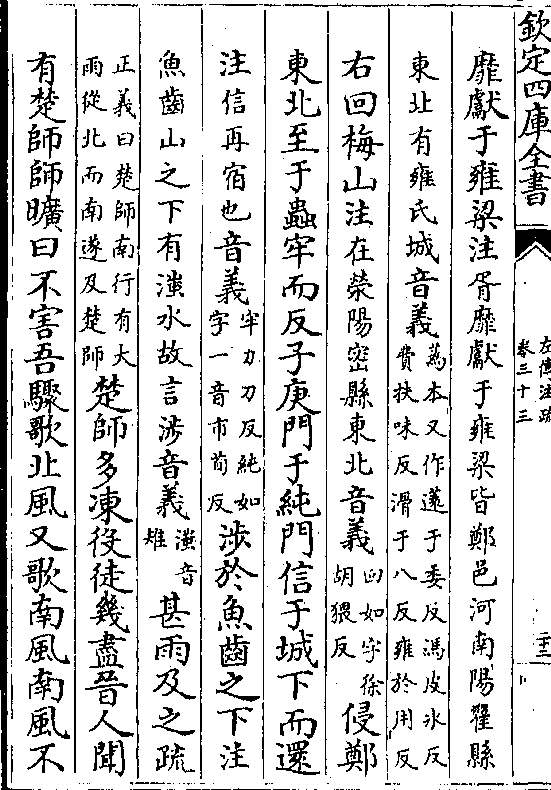 欽定四庫全書
左傳注疏
卷三十三
二十二
靡獻于雍梁注胥靡獻于雍梁皆鄭邑河南陽翟縣
東北有雍氏城音義蒍本又作薳于委反馮皮冰反
費扶味反滑于八反雍於用反
右回梅山注在滎陽密縣東北音義回如字徐
胡猥反侵鄭
東北至于蟲牢而反子庚門于純門信于城下而還
注信再宿也音義牢力刀反純如
字一音市荀反涉於魚齒之下注
魚齒山之下有滍水故言涉音義滍音
雉甚雨及之疏
正義曰楚師南行有大
雨從北而南遂及楚師楚師多凍役徒幾盡晉人聞
有楚師師曠曰不害吾驟歌北風又歌南風南風不